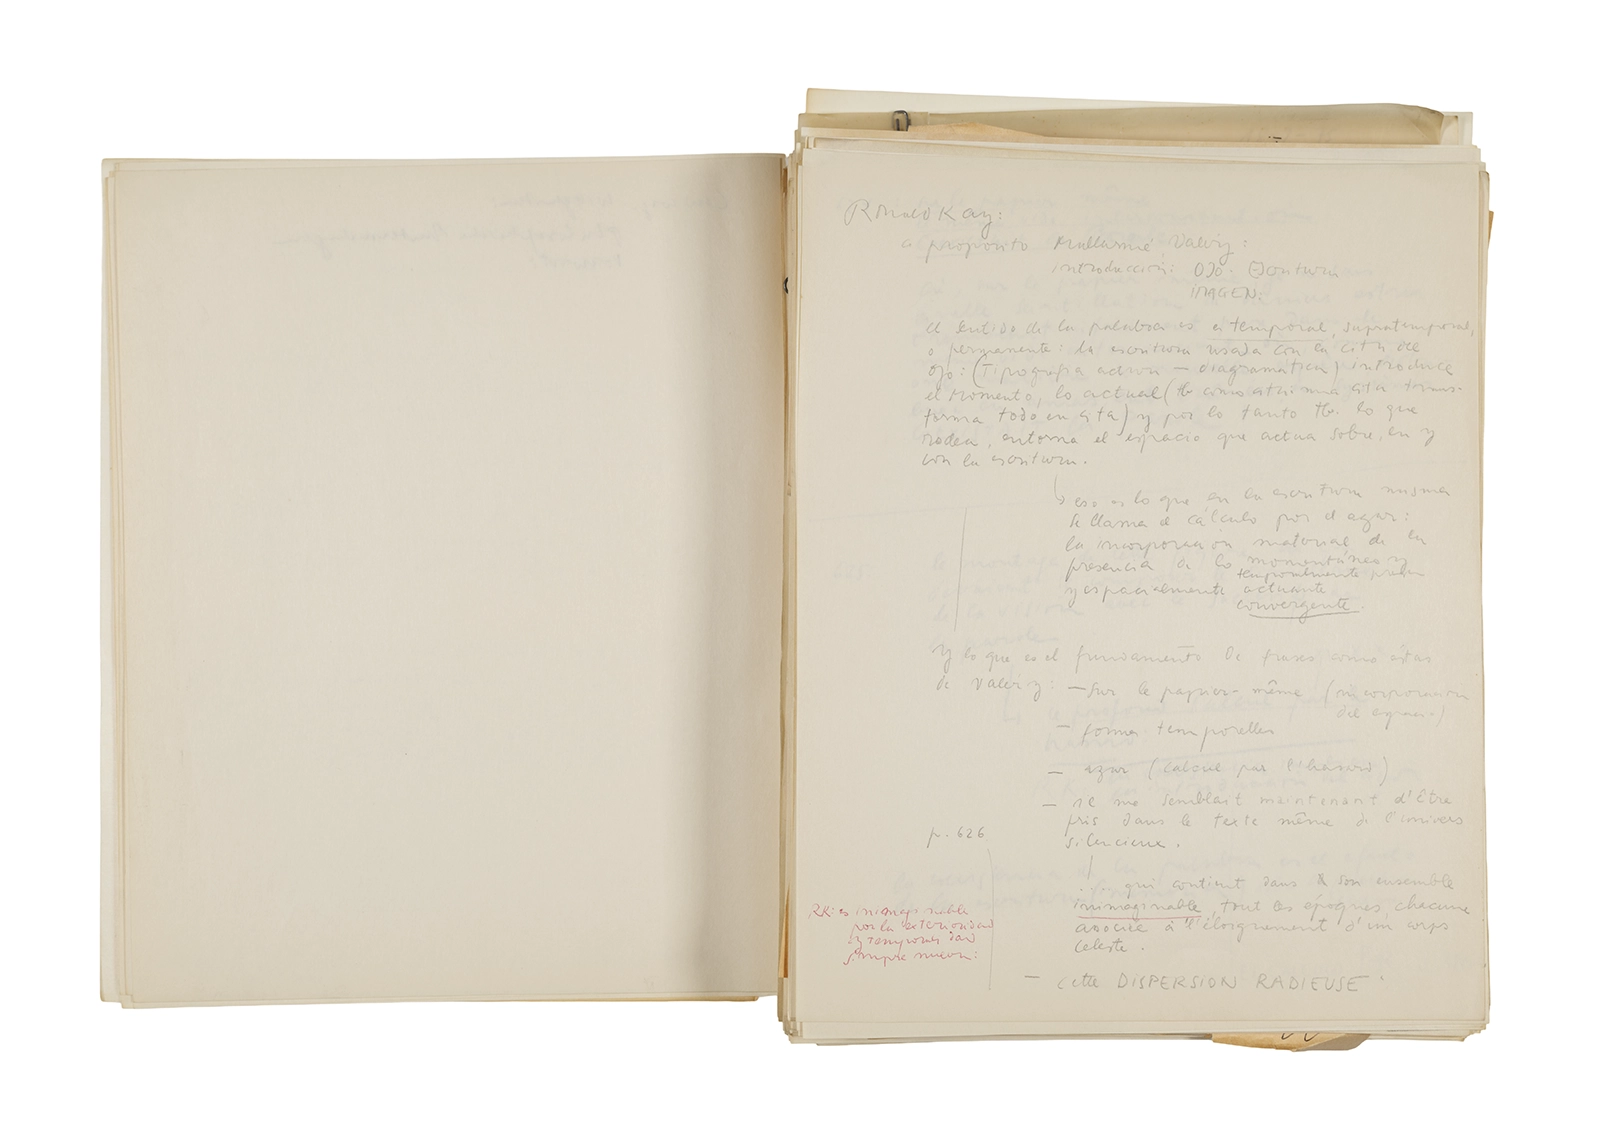 Ronald Kay:
a propósito Mallarmé, Valéry:
introducción: OJO. Escritura
IMAGEN:
el sentido de la palabra es atemporal, supratemporal,
o permanente: la escritura usada con la cita del
ojo: (Tipografia action — diagramática) introduce
el Momento, lo actual (tb como una cita trans-
forma todo en cita) y por lo tanto tb. lo que
rodea, entorna el espacio que actua sobre, en y
con la escritura.
eso es lo que en la escritura misma
se llama el cálculo por el azar:
la incorporación material de la
presencia de lo momentáneo y
temporalmente
y espacialmente actuante
convergente.
Y lo que es el fundamento de frases como éstas
de Valéry: — Sur le papier-même (incorporación
del espacio)
— formes temporelles
— azar (calcul par l'hasard)
— il me semblait maintenant d'être
pris dans le texte même de l'univers
silencieux.
p. 626
... qui contient dans son ensemble
inimaginable, tout les époques, chacune
associée à l'éloignement d'un corps
celeste.
RK: es inimaginable
por la exterioridad
y temporalidad
siempre nueva:
— cette DISPERSION RADIEUSE.